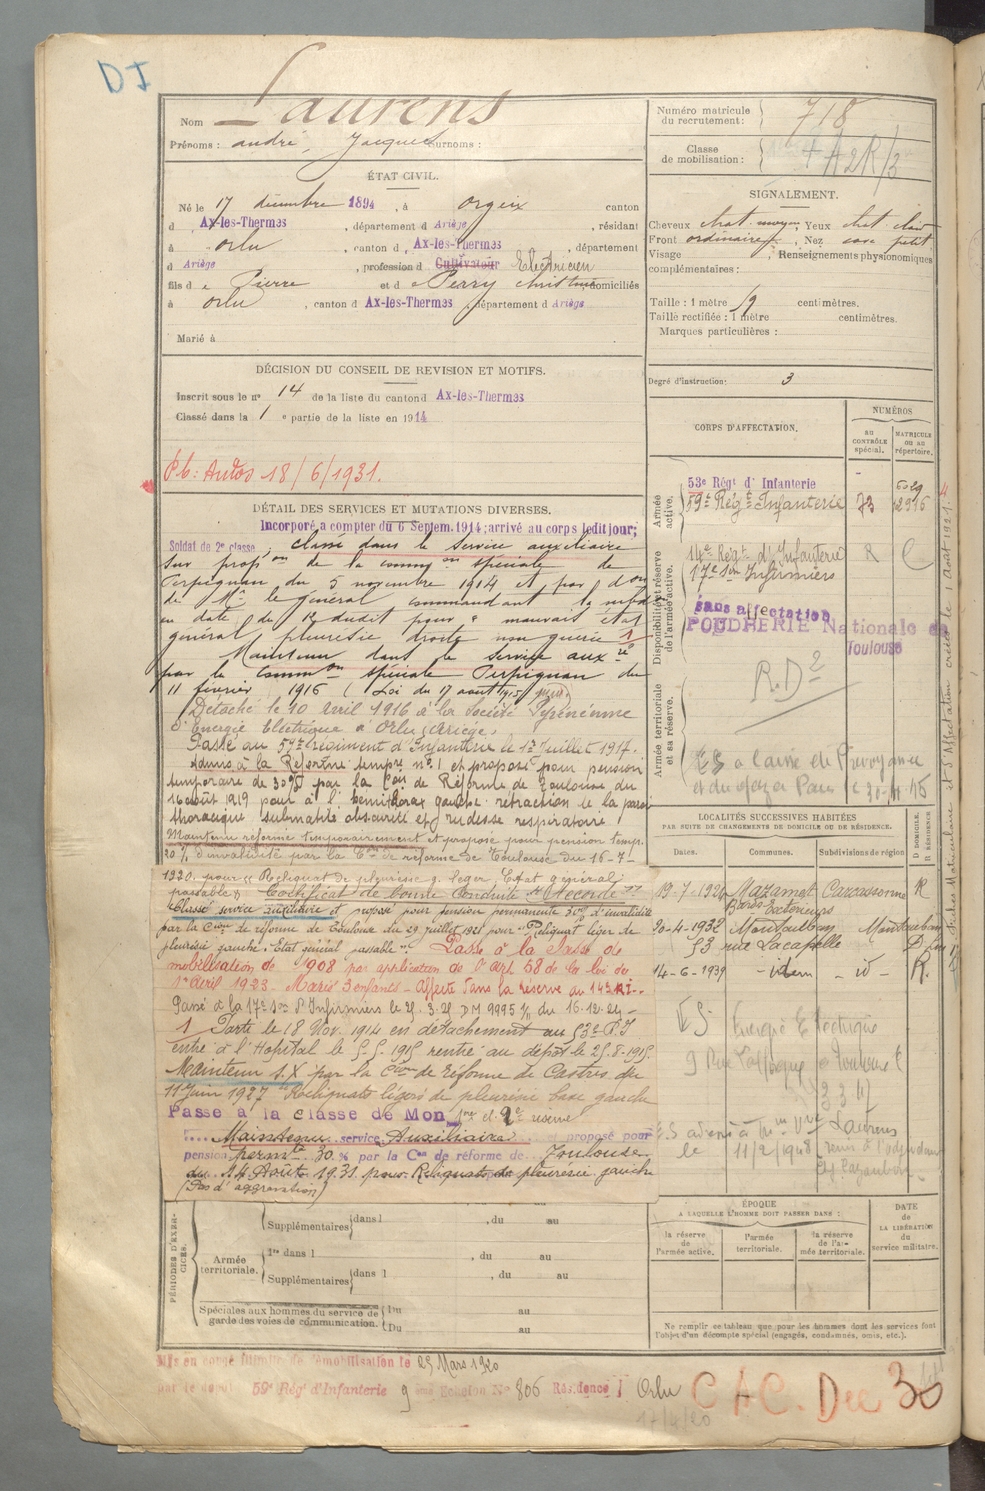 DI
Nom Laurens
Prénoms : andré, Jacques Surnoms :
Numéro matricule du recrutement : 718
Classe de mobilisation :
ÉTAT CIVIL.
Né le 17 décembre 1894, à Orgeix canton
d Ax-les-Thermes, département d Ariège, résidant
à Orlu, canton d Ax-les-Thermes, département
d Ariège, profession d Cultivateur Electricien
fils de Pierre et de Perry Christine domiciliés
à Orlu, canton d Ax-les-Thermes, département d Ariège
Marié à
SIGNALEMENT.
Cheveux chat. moyen, Yeux chat clair
Front ordinaire, Nez cave petit
Visage ; Renseignements physionomiques
complémentaires :
Taille : 1 mètre centimètres.
Taille rectifiée : 1 mètre centimètres.
Marques particulières :
Degré d'instruction : 3
DÉCISION DU CONSEIL DE REVISION ET MOTIFS.
Inscrit sous le n° 14 de la liste du canton d Ax-les-Thermes
Classé dans la 1e partie de la liste en 1914
Pb: Autos 18/6/1931.
DÉTAIL DES SERVICES ET MUTATIONS DIVERSES.
Incorporé a compter du 6 Septem. 1914; arrivé au corps ledit jour;
Soldat de 2e classe, classé dans le Service auxiliaire
sur propon de la common spéciale de
Perpignan du 5 novembre 1914 et par don
de Mr le général commandant la subdon
en date du 12 dudit pour " mauvais état
général pleurésie droite non guérie 1
Maintenu dans le service auxre
par la Common spéciale Perpignan du
11 février 1916 (Loi du 17 août 1915
Détaché le 10 Avril 1916 à la Société Pyrénéenne
d'Energie Electrique à Orlu (Ariège)
Passé au 59e régiment d'Infanterie le 1er Juillet 1917.
Admis à la Réforme tempre n° 1 et proposé pour pension
temporaire de 30% par la Con de Réforme de Toulouse du
16 août 1919 pour à l'hémithorax gauche rétraction de la paroi
thoracique submatité obscurité et rudesse respiratoire
Maintenu réformé temporairement et proposé pour pension temp.
20% d'invalidité par la Con de réforme de Toulouse du 16-7-
1920, pour " Reliquat de pleurésie g. léger, Etat général
passable " Certificat de bonne Conduite " Accordé "
Classé service auxiliaire et proposé pour pension permanente 30% d'invalidité
par la Cion de réforme de Toulouse du 29 juillet 1921 pour "Reliquat léger de
pleurésie gauche. Etat général passable". Passé à la classe de
mobilisation de 1908 par application de l'art. 58 de la loi du
1er Avril 1923 - Marié 3 enfants - Affecté dans la réserve du 14e RI.
Passé à la 17e Son d'Infirmiers le 25.3.25 DM 9995 du 16.12.24
1 Parti le 18 Nov. 1914 en détachement au 53e R.I
entré à l'Hôpital le 5.5.1915 rentré au dépôt le 25.8.1915.
Maintenu S.X par la Cion de Réforme de Castres du
11 Juin 1927 " Reliquats légers de pleurésie base gauche
Passé à la classe de Mon 1re et 2e réserve
Maintenu service Auxiliaire et proposé pour
pension permte 30 % par la Con de réforme de Toulouse
du 14 Août 1931 pour Reliquats de pleurésie gauche
(Pas d'aggravation)
CORPS D'AFFECTATION.
NUMÉROS
AU CONTRÔLE spécial.
MATRICULE OU AU répertoire.
Armée active.
53e Régt d'Infanterie
59e Régt Infanterie 73
Disponibilité et réserve de l'armée active.
14e Régt d'Infanterie R C
17e Son Infirmiers
Sans affectation
POUDRERIE Nationale de
Toulouse
R.D2
Armée territoriale et sa réserve.
LOCALITÉS SUCCESSIVES HABITÉES
PAR SUITE DE CHANGEMENTS DE DOMICILE OU DE RÉSIDENCE.
Dates. Communes. Subdivisions de région D DOMICILE. R RÉSIDENCE
19-7-1924 Mazamet Carcassonne R
20-4-1932 Montauban Montauban D
53 rue Lacapelle
14-6-1939 - idem - id - R.
Energie Electrique
11/2/1948
PÉRIODES D'EXERCICES.
Supplémentaires dans l , du au
Armée territoriale. 1re dans l , du au
Supplémentaires dans l , du au
Spéciales aux hommes du service de garde des voies de communication. Du au
Du au
ÉPOQUE
A LAQUELLE L'HOMME DOIT PASSER DANS :
la réserve de l'armée active.
l'armée territoriale.
la réserve de l'armée territoriale.
DATE de LA LIBÉRATION du service militaire.
Ne remplir ce tableau que pour les hommes dont les services font
l'objet d'un décompte spécial (engagés, condamnés, omis, etc.).
Mis en congé illimité de démobilisation le 25 Mars 1920
par le dépôt 59e Rég' d'Infanterie 9 eme Echelon N° 806 Résidence Orlu
17/4/20
CAC. Dec 30